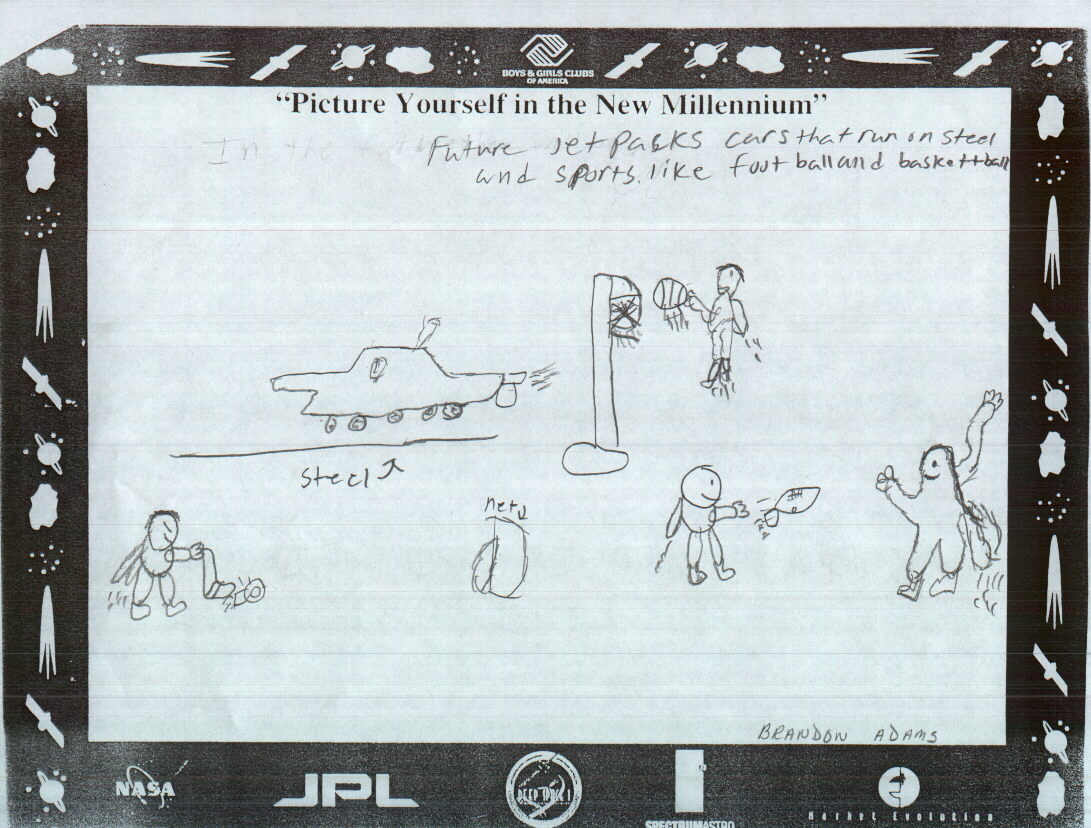 BOYS & GIRLS CLUBS
OF AMERICA
"Picture Yourself in the New Millennium"
In the
Future Jet Packs cars that run on steel
and sports. like foot ball and baskettball
Steel
net
BRANDON ADAMS
NASA
JPL
DEEP SPACE 1
SPECTRUMASTRO
Market Evolution